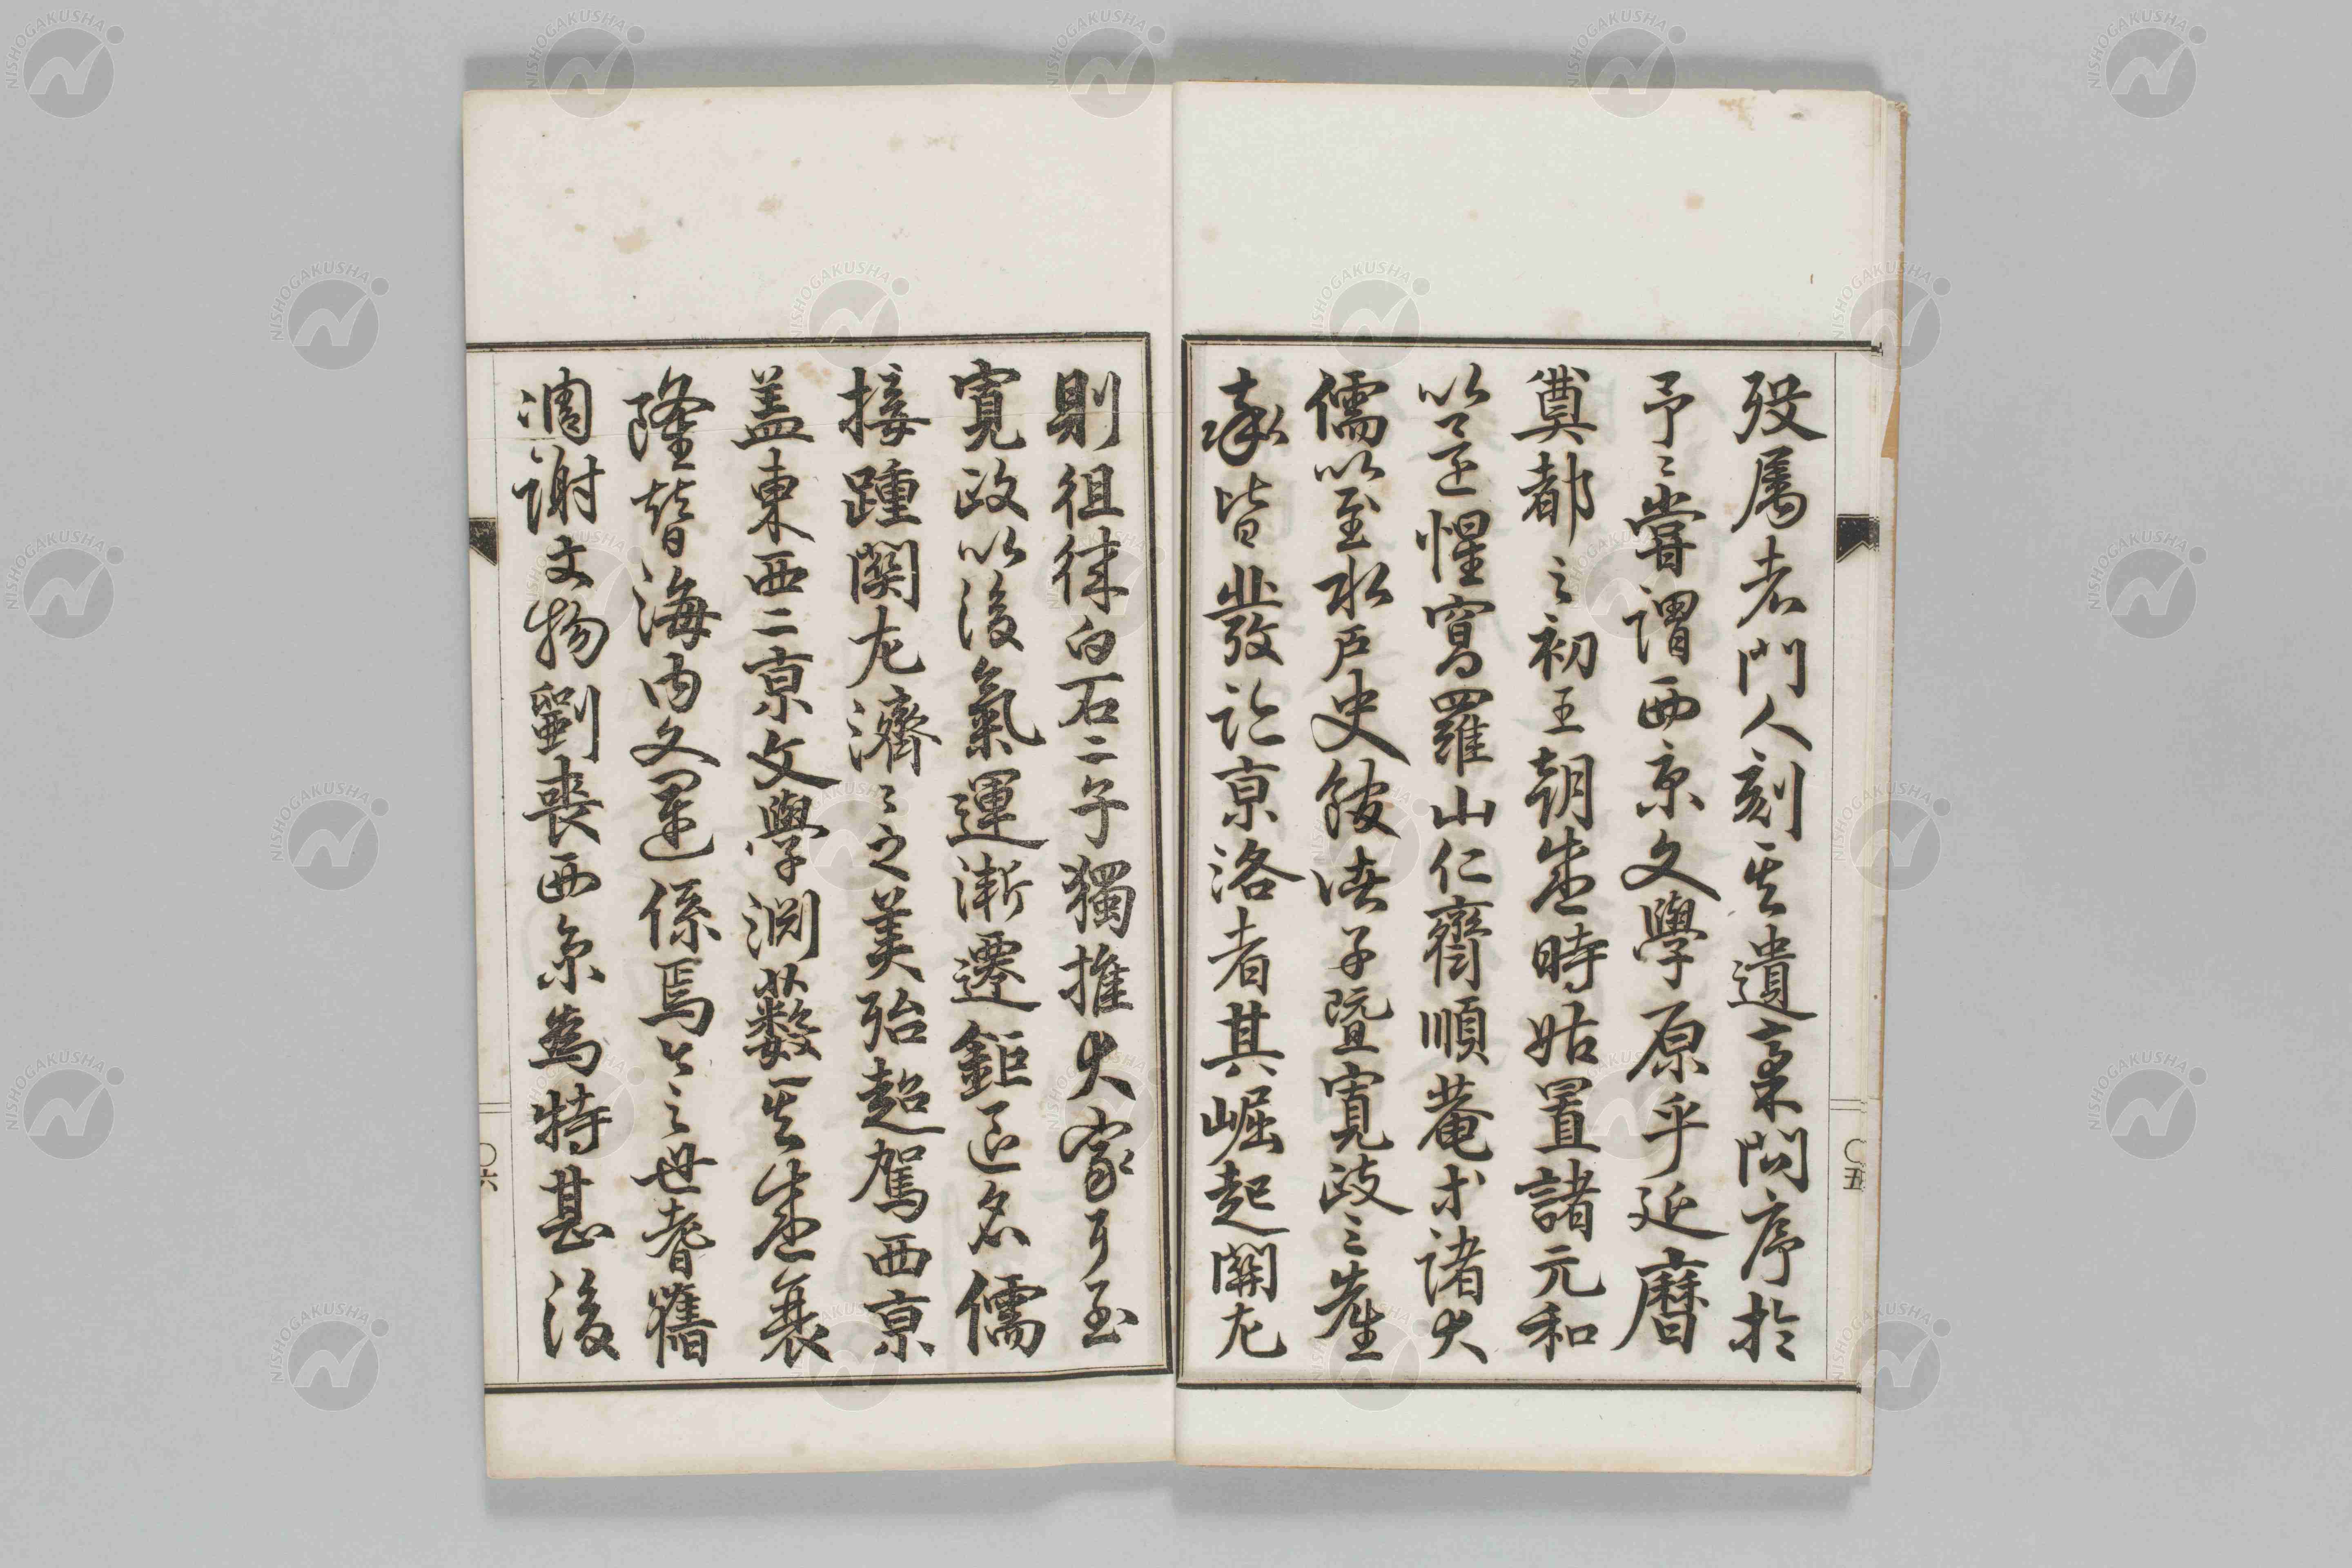 歿属老門人刻其遺稾問序於
予〻嘗謂西京文學原乎延曆
奠都之初王朝盛時姑置諸元和
以還惺窩羅山仁齋順菴木諸大
儒以至水戶史館諸子暨寬政三先生
輩皆發跡京洛者其崛起關左
則徂徠白石二子獨推大家耳至
寬政以後氣運漸遷鉅匠名儒
接踵關左濟〻之美殆超駕西京
盖東西二京文學淵藪其盛衰
隆替海内文運係焉今之世耆舊
凋謝文物剷喪西京為特甚後
〇五
〇六
NISHOGAKUSHA